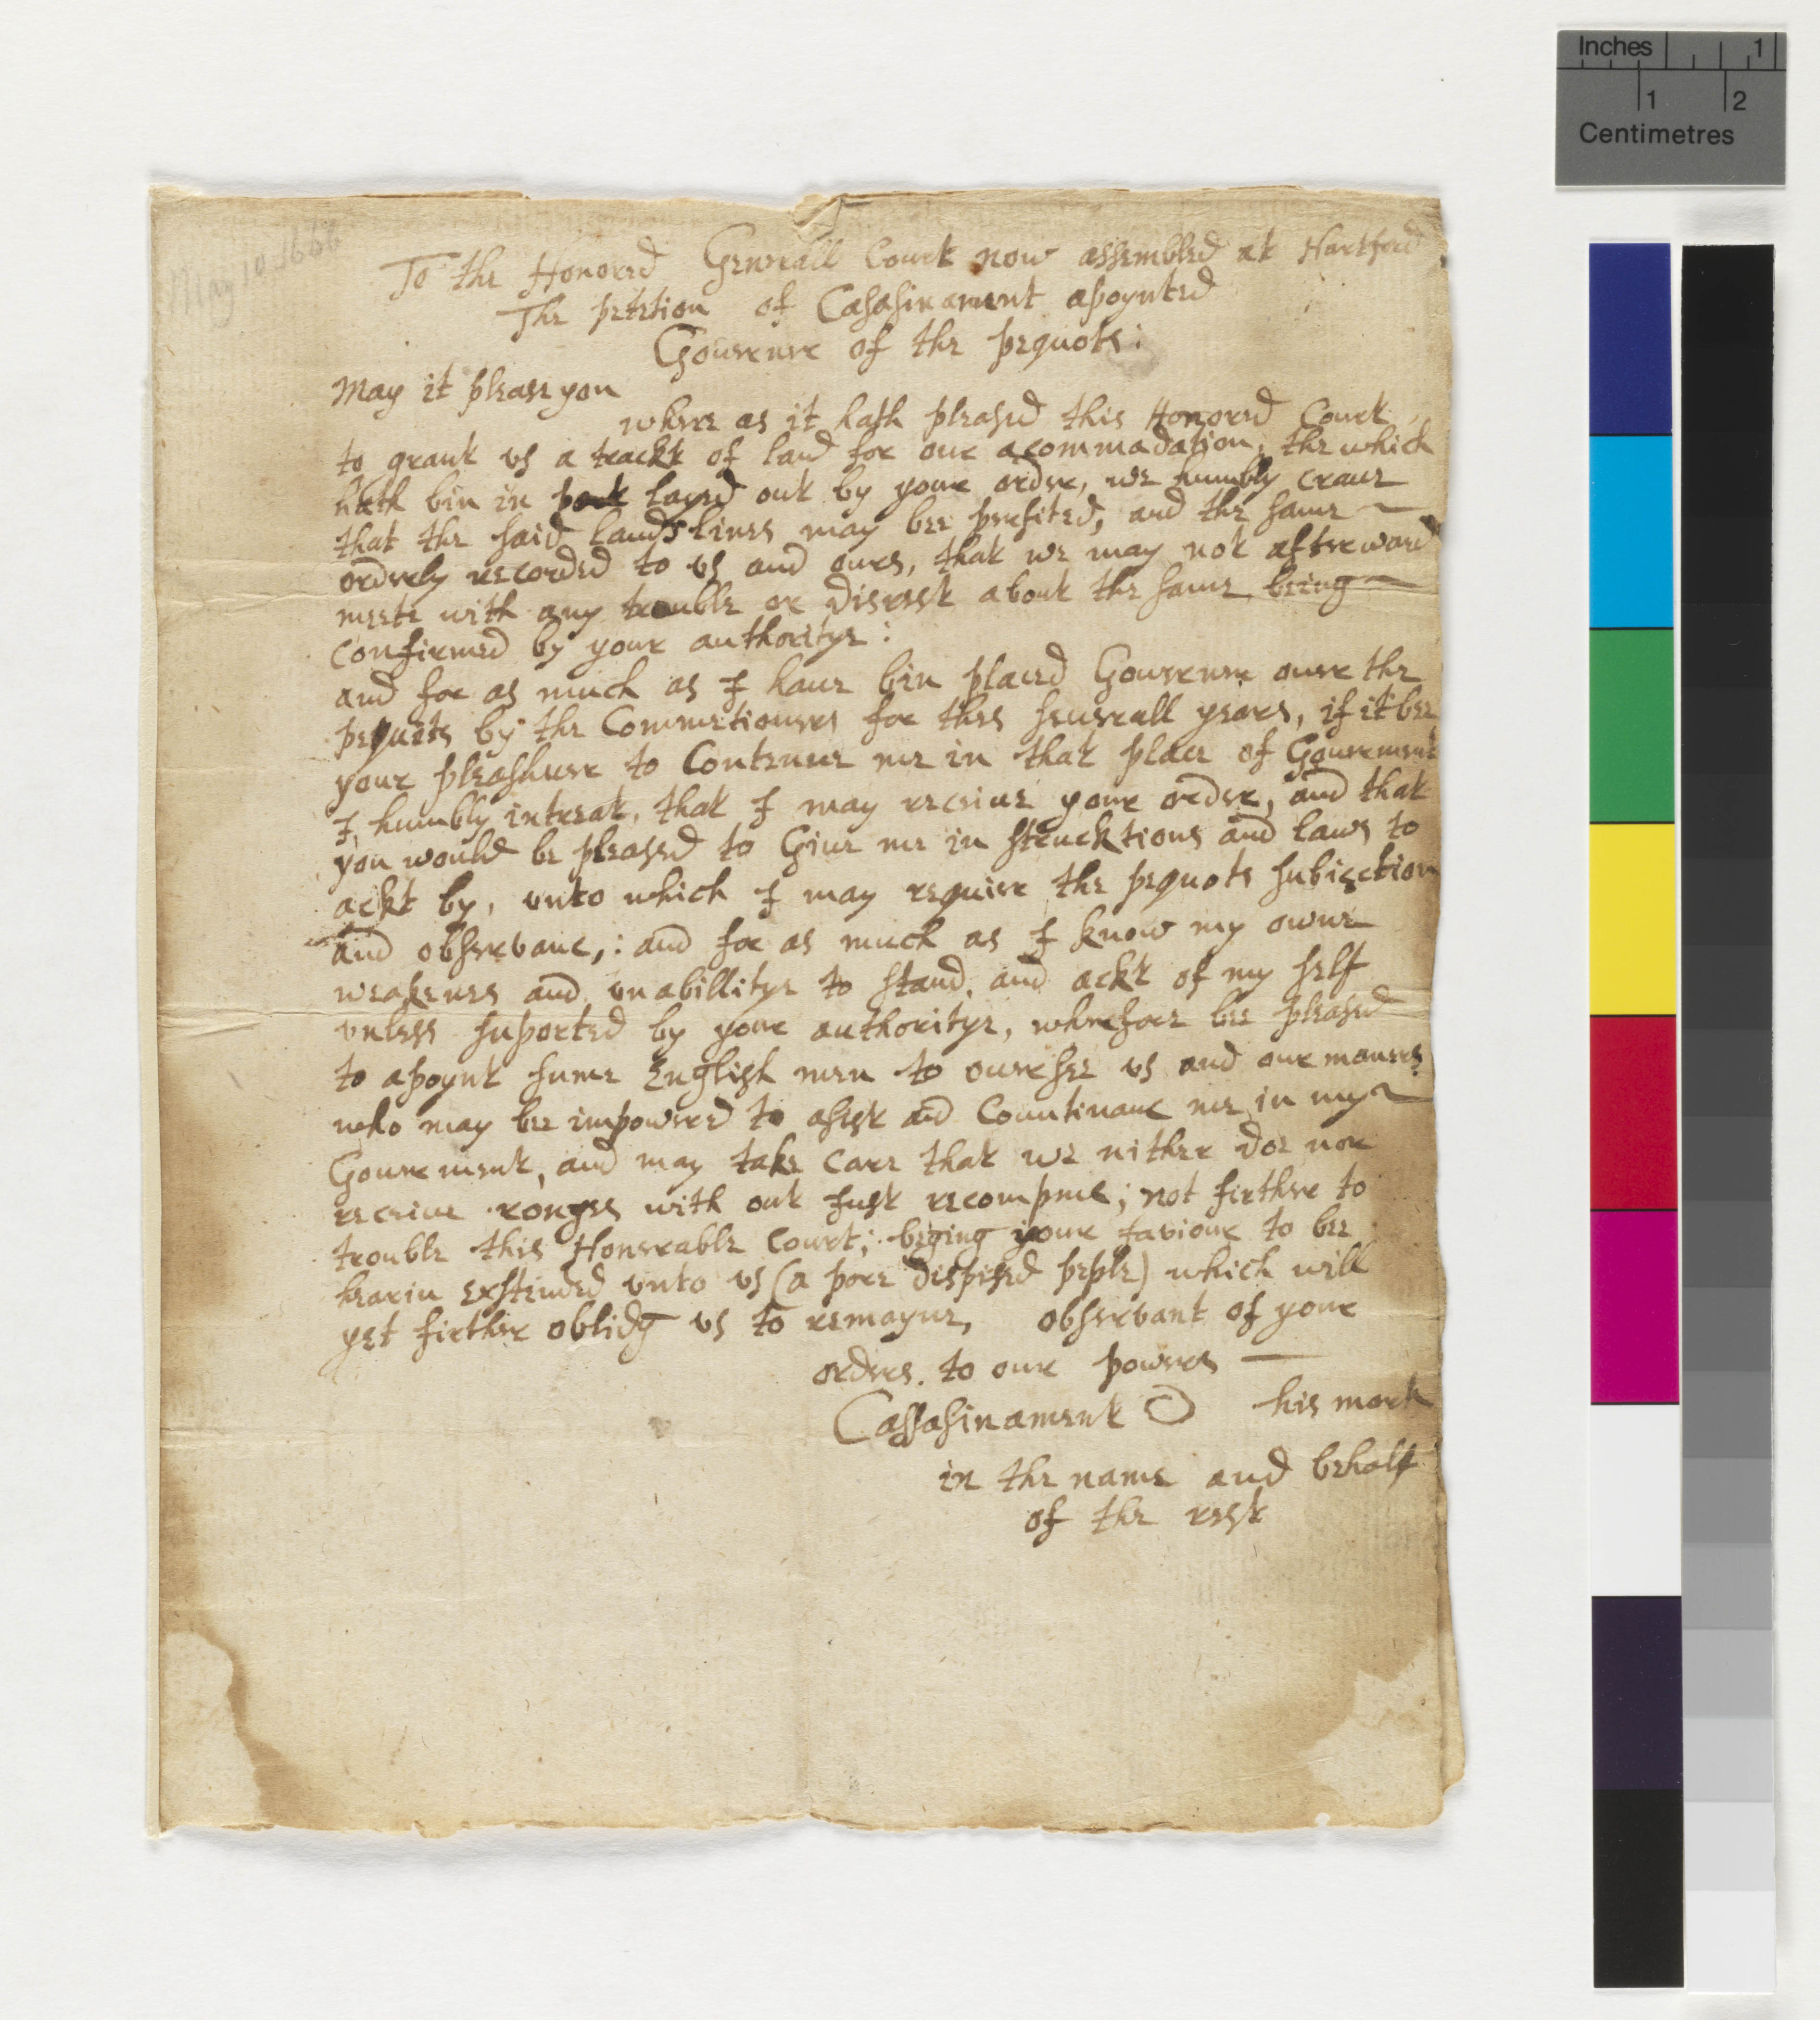 Inches 1
1 2
Centimetres
May 10 1666
To the Honored Generall Court now assembled at Hartford
The petetion of Casasinament apoynted
Gouerner of the pequots:
May it please you
where as it hath pleased this Honored Court
to grant vs a trackt of land for our acommadation, the which
hath bin in part layed out by your order, we humbly craue
that the said lands lines may bee perfited, and the same
orderly recorded to vs and ours, that we may not afterward
meete with any trouble or disrest about the same being
confirmed by your authoritye:
and for as much as I haue bin placed Gouerner ouer the
pequets by the Commetioners for thes seuerall years, if it bee
your pleashure to Conteneue me in that place of Gouerment
I humbly intreat, that I may receiue your order, and that
you would be pleased to Giue me in strucktions and laws to
ackt by, vnto which I may require the pequots subiection
and obseruanc,: and for as much as I know my owne
weakenes and vnabillitye to stand, and ackt of my self
vnless suported by your authoritye, wherfore bee pleased
to apoynt sume English men to ouersee vs and our maners
who may bee impowered to asist and Countinanc me in my
Gouerment, and may take care that we nither doe nor
receiue ronges with out Just recompenc; not firther to
trouble this Honerable Court; beging your faviour to bee
hearin exstended vnto vs (a pore dispised peple) which will
yet firther oblidg vs to remayne, obseruant of your
orders. to our powers
Cassasinament his mark
in the name and behalf
of the rest